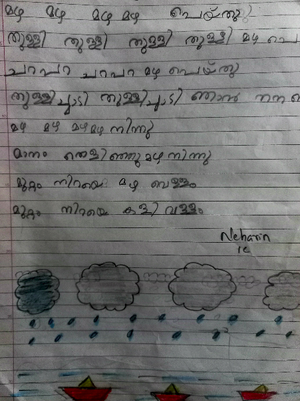 മഴ മഴ മഴ മഴ പെയ്തു
തുള്ളി തുള്ളി തുള്ളി തുള്ളി മഴ പെ
ചറപറ ചറപറ മഴ പെയ്തു
തുള്ളിച്ചാടി തുള്ളിച്ചാടി ഞാൻ നന
മഴ മഴ മഴമഴ നിന്നു
മാനം തെളിഞ്ഞു മഴ നിന്നു
മുറ്റം നിറയെ മഴ വെള്ളം
മുറ്റം നിറയെ കളി വള്ളം
Neharin